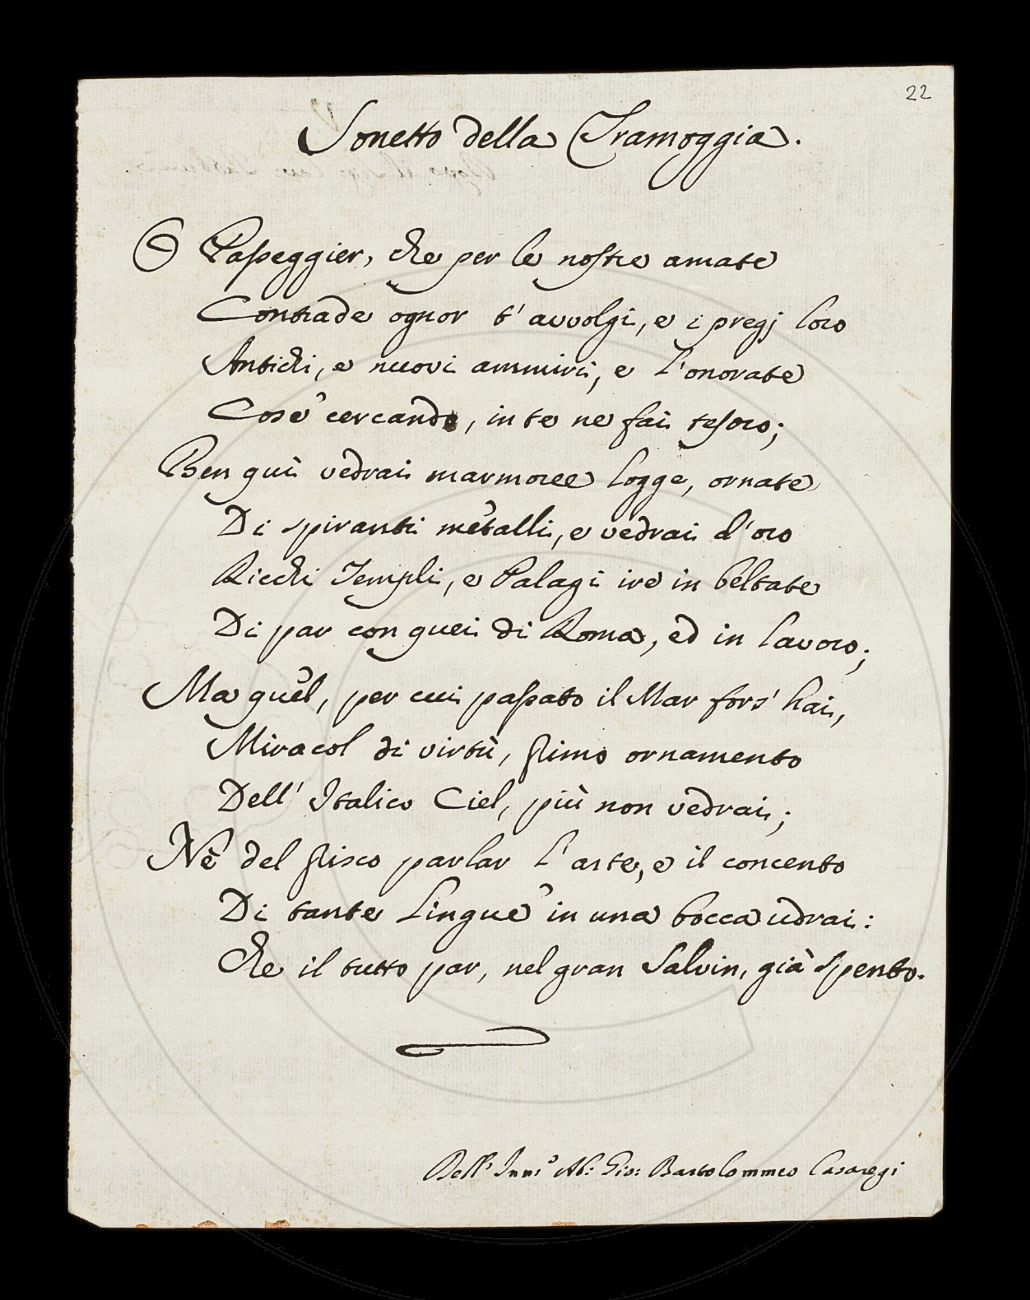 22
Sonetto della Tramoggia.
O Passeggier, che per le nostre amate
Contrade ognor t'avvolgi, e i pregj loro
Antichi, e nuovi ammiri, e l'onorate
Cose cercando, in te ne fai tesoro;
Ben quì vedrai marmoree logge, ornate
Di spiranti metalli, e vedrai d'oro
Ricchi Templi, e Palagi ire in beltate
Di par con quei di Roma, ed in lavoro;
Ma quel, per cui passato il Mar fors' hai,
Miracol di virtù, primo ornamento
Dell' Italico Ciel, più non vedrai;
Nè del prisco parlar l'arte, e il concento
Di tante Lingue in una bocca udrai:
Che il tutto par, nel gran Salvin, già spento.
Dell' Ab: Gio: Bartolommeo Casaregi